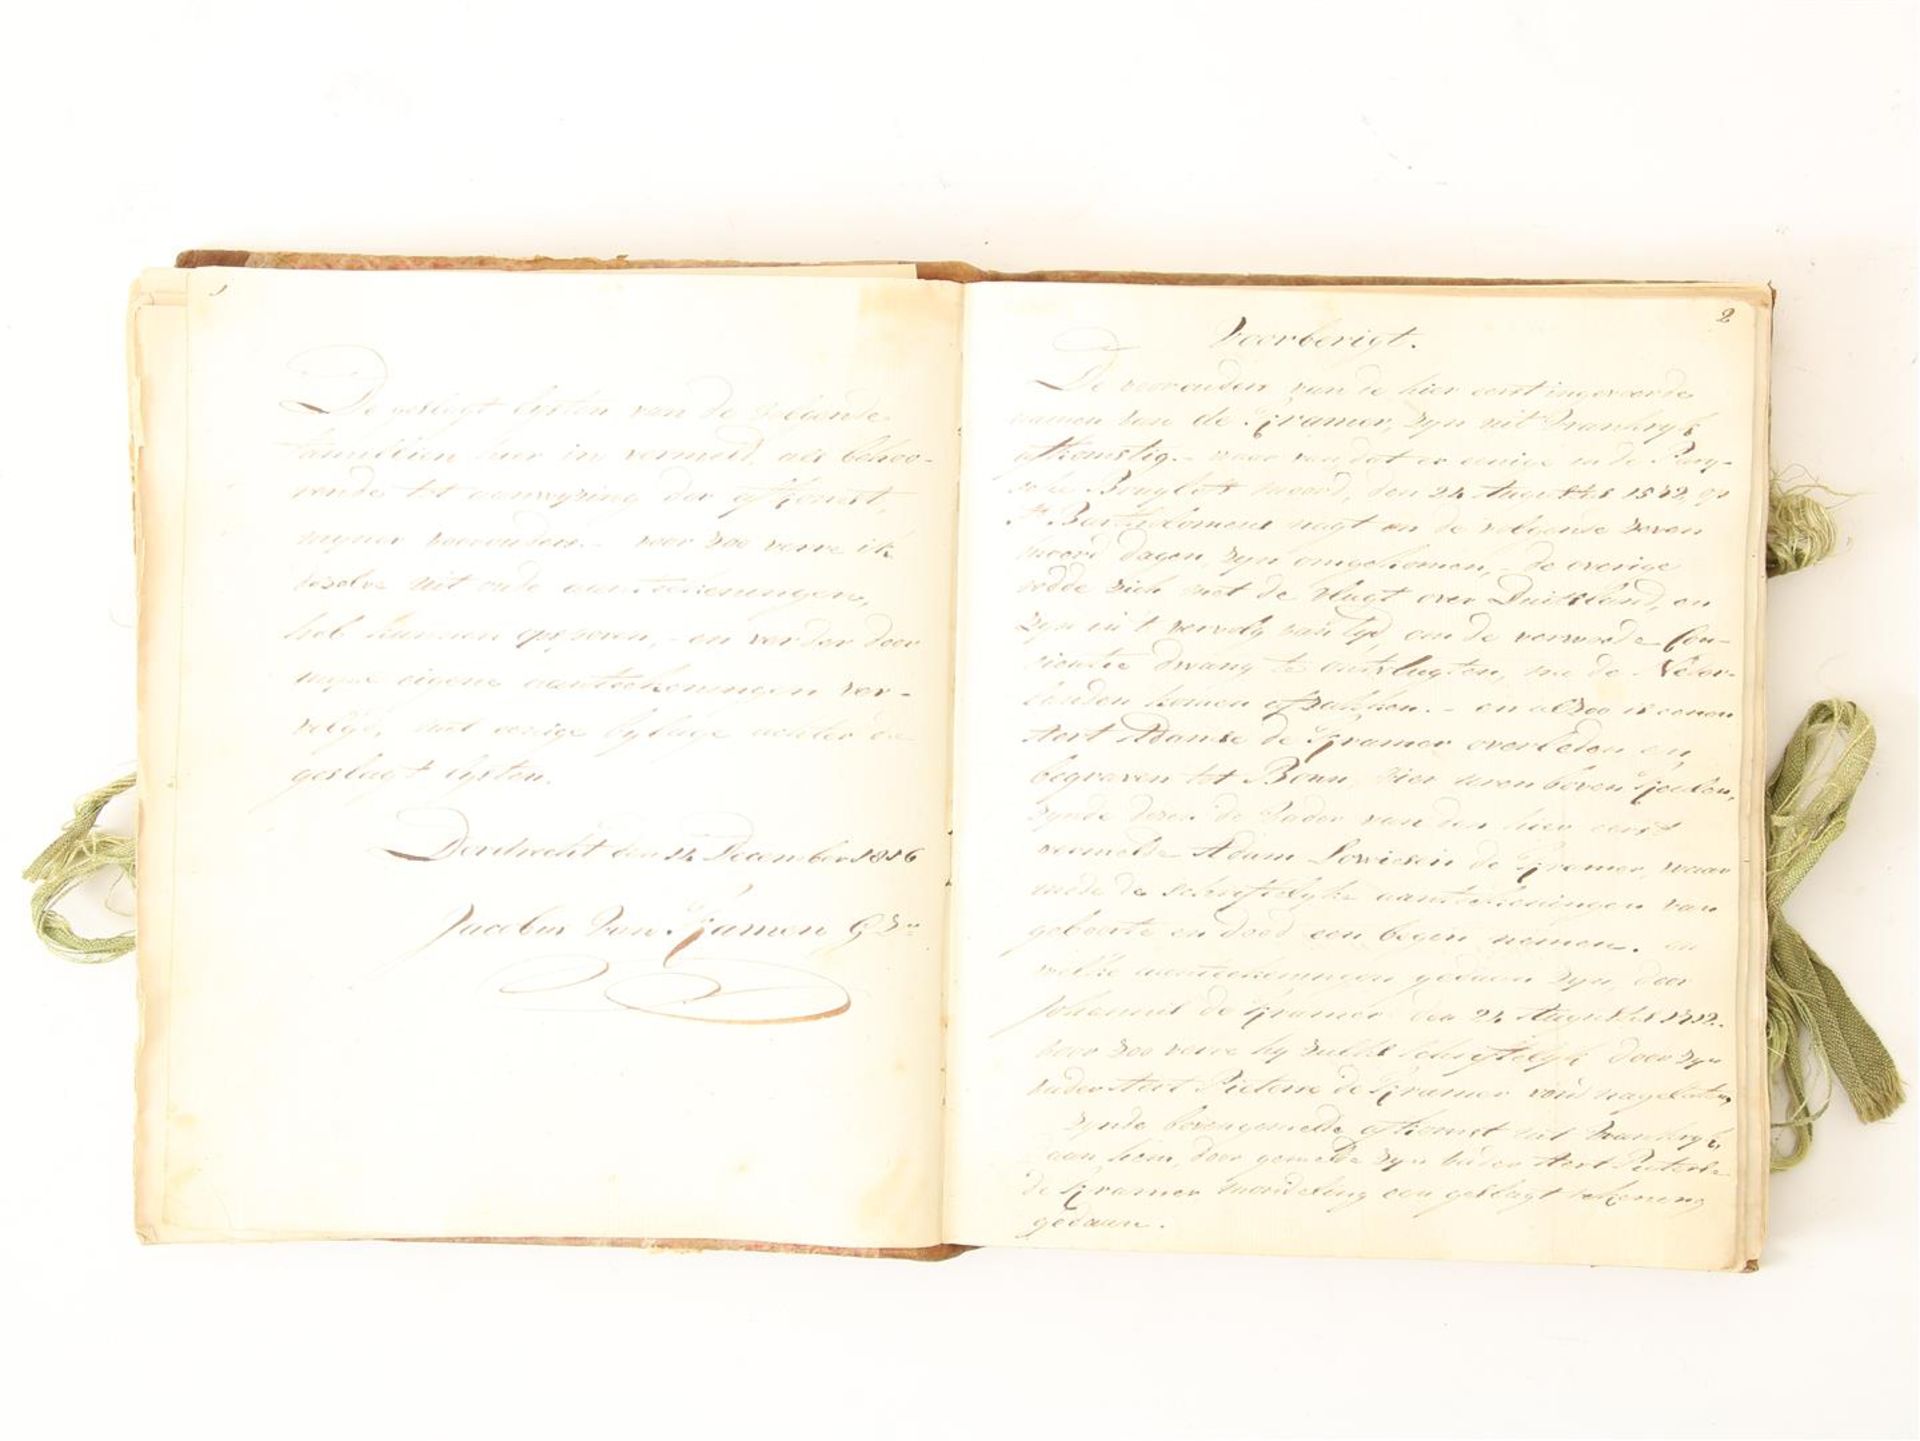 1
De geslagt lysten van de volgende
familien hier in vermeld, als behoo-
rende tot aanwyzing der afkomst,
myner voorouders. - voor zoo verre ik
dezelve uit oude aantekeningen,
heb kunnen opsporen, - en verder door
myne eigene aanteekeningen ver-
volgd, met eenige bylage achter de
geslagt lysten.
Dordrecht den 14 December 1816
Jacobus Van Kamen Gzn
2
Voorberigt.
De voorouders van de hier eerst ingevoerde
namen van de Kramer, zyn uit Vrankryk
afkomstig. - waar van dat er eenige in de Pary-
sche Bruyloft moord, den 24 Augustus 1572, op
St Bartholomeus nagt en de volgende zeven
moord dagen, zyn omgekomen, - de overige
redde zich met de vlugt over Duitsland, en
zyn in 't vervolg van tyd, om de verwoede Con-
sientie dwang te ontvlugten, na de Neder-
landen komen afzakken. - en alzoo is eenen
Aert Adamse de Kramer overleden en
begraven tot Bonn, vier uren boven Keulen,
zynde dezen de Vader van den hier eerst
vermelde Adam Lowiesen de Kramer, waar
mede de schriftelyke aantekeningen van
geboorte en dood een begin nemen. en
welke aantekeningen gedaan zyn, door
Johannis de Kramer den 24 Augustus 1712.
voor zoo verre hy zulks schriftelyk door zyn
vader Aert Pieterse de Kramer vond nagelaten,
zynde bovengemelde afkomst uit Vrankryk,
aan hem, door gemelde zyn vader Aert Pieterse
de Kramer mondeling een geslagt rekening
gedaan.